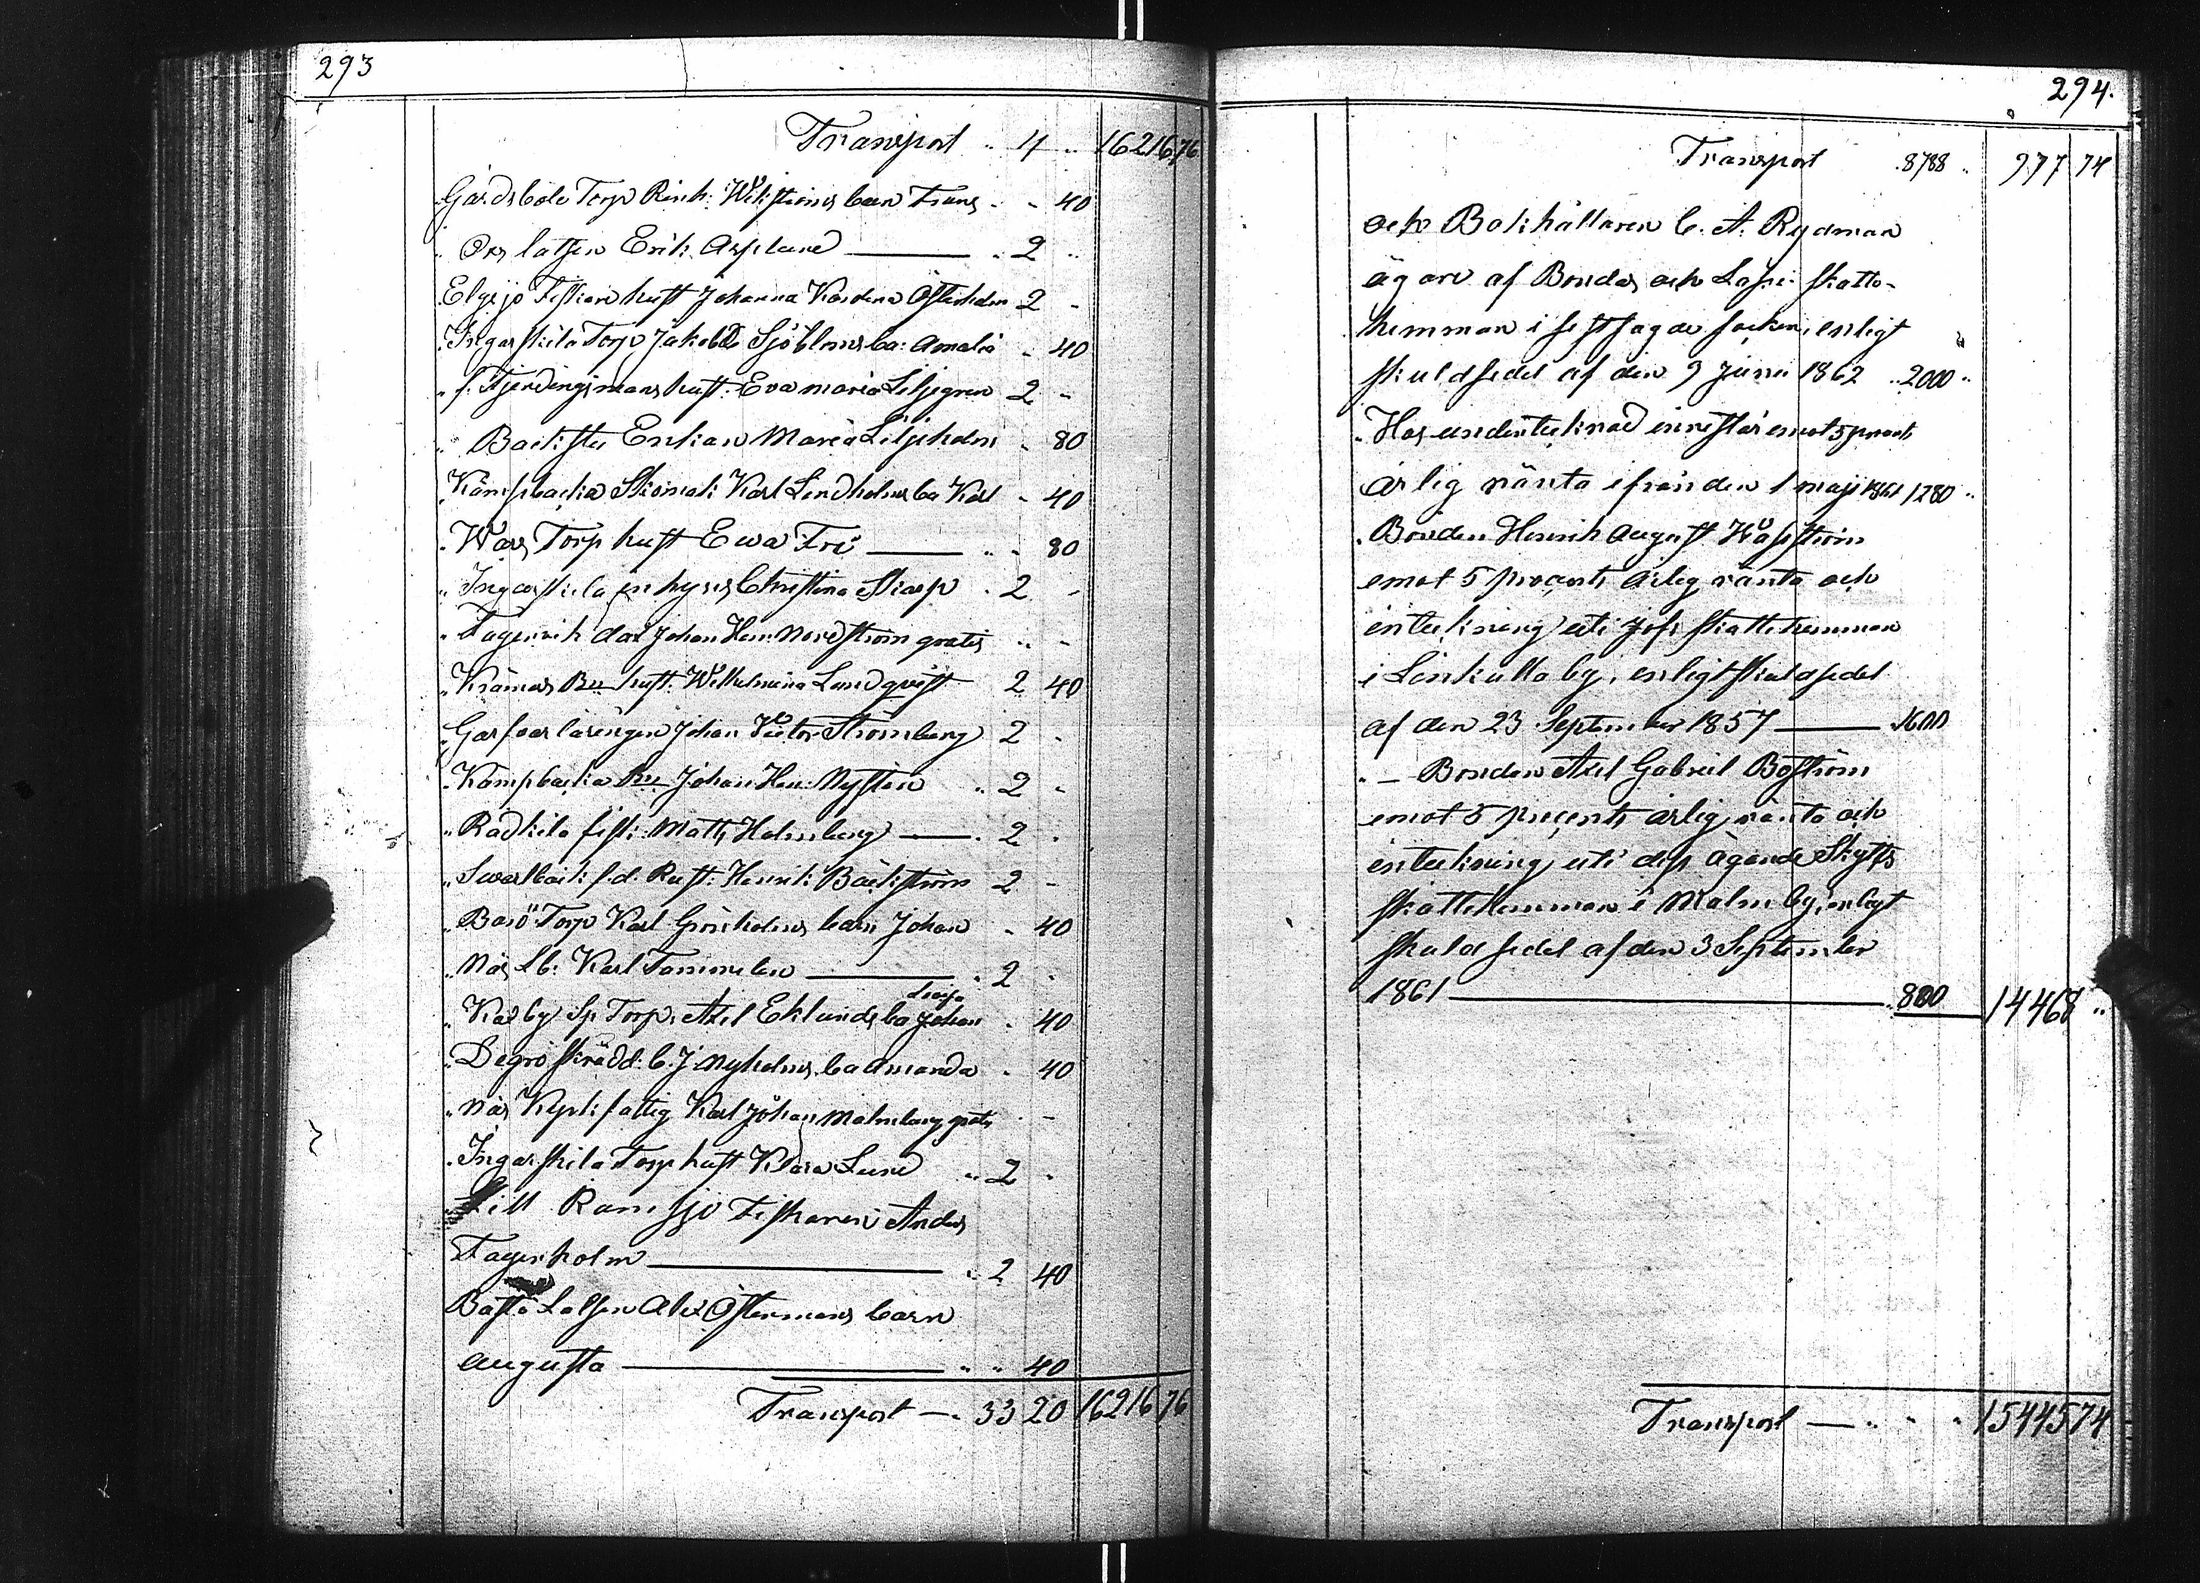 293
Transport .. 4 .. 16216 76
Gårdsböle Torp Rinh: Wikströms barn Frans - - 40
" lotsen Erik Asplund — .. 2 ..
Elgsjö Fiskare hust Johanna Karolina Österholm 2 -
Ingarskila Torp Jakob Sjöbloms ba: Amalia - 40
" f. Fjerdingsmans hust: Eva Maria Liljegren 2 -
" Backstu Enkan Maria Liljeholm - 80
Kämpbacka Skomak: Karl Lindholms ba Karl - 40
" Torp hust Ewa Fri — .. - 80
" Ingarskila inhyses Christina Skarp . 2 -
" Fagervik Johan Hen: Nordström gratis .. -
" hust: Wilhelmina Lundqvist 2 40
Garfvarlärlingen Johan Victor Strömberg 2 -
" Kämpbacka Johan Hen: Nystén .. 2 -
" Rådkila fisk: Matts Holmberg — . 2 .
" Svartbäck f.d. Rust: Henrik Bäckström 2 -
" Barö Torp Karl Grönholms barn Johan - 40
" Näs Karl Tammelin — . 2 .
" Karby Sp Torp: Axel Eklunds ba Johan . 40
" Degerö Skrädd: C. J. Nyholms ba Amanda . 40
" Näs Kyrk fattig Karl Johan Malmberg gratis . -
. Ingarskila Torp hust Klara Lund .. 2 .
Till Ramsjö Fiskaren Anders
Fagerholm — .. 2 40
Båstö Lotsen Alex Östermans barn
Augusta — .. .. 40
Transport — . 33 20 16216 76
294.
Transport . 8788 .. 977 74
och Bokhållaren C. A. Rydman
ägare af Bondas och Lassi skatte-
hemman i sistsagde socken, enligt
skuldsedel af den 9 Junii 1862 .. 2000 ..
" Hos undertecknad innestår emot 5 procents
årlig ränta ifrån den 1 Maji 1861 1280 ..
" Bonden Henrik August
emot 5 procents årlig ränta och
inteckning uti Jofs skattehemman
i Linkulla by, enligt skuldsedel
af den 23 September 1857 — 1600
" — Bonden Axel Gabriel Boström
emot 5 procents årlig ränta och
inteckning uti dess ägande Skytts
skattehemman i Malm by, enligt
skuldsedel af den 3 September
1861 — . 800 14468 ..
Transport — .. - . 15445 74